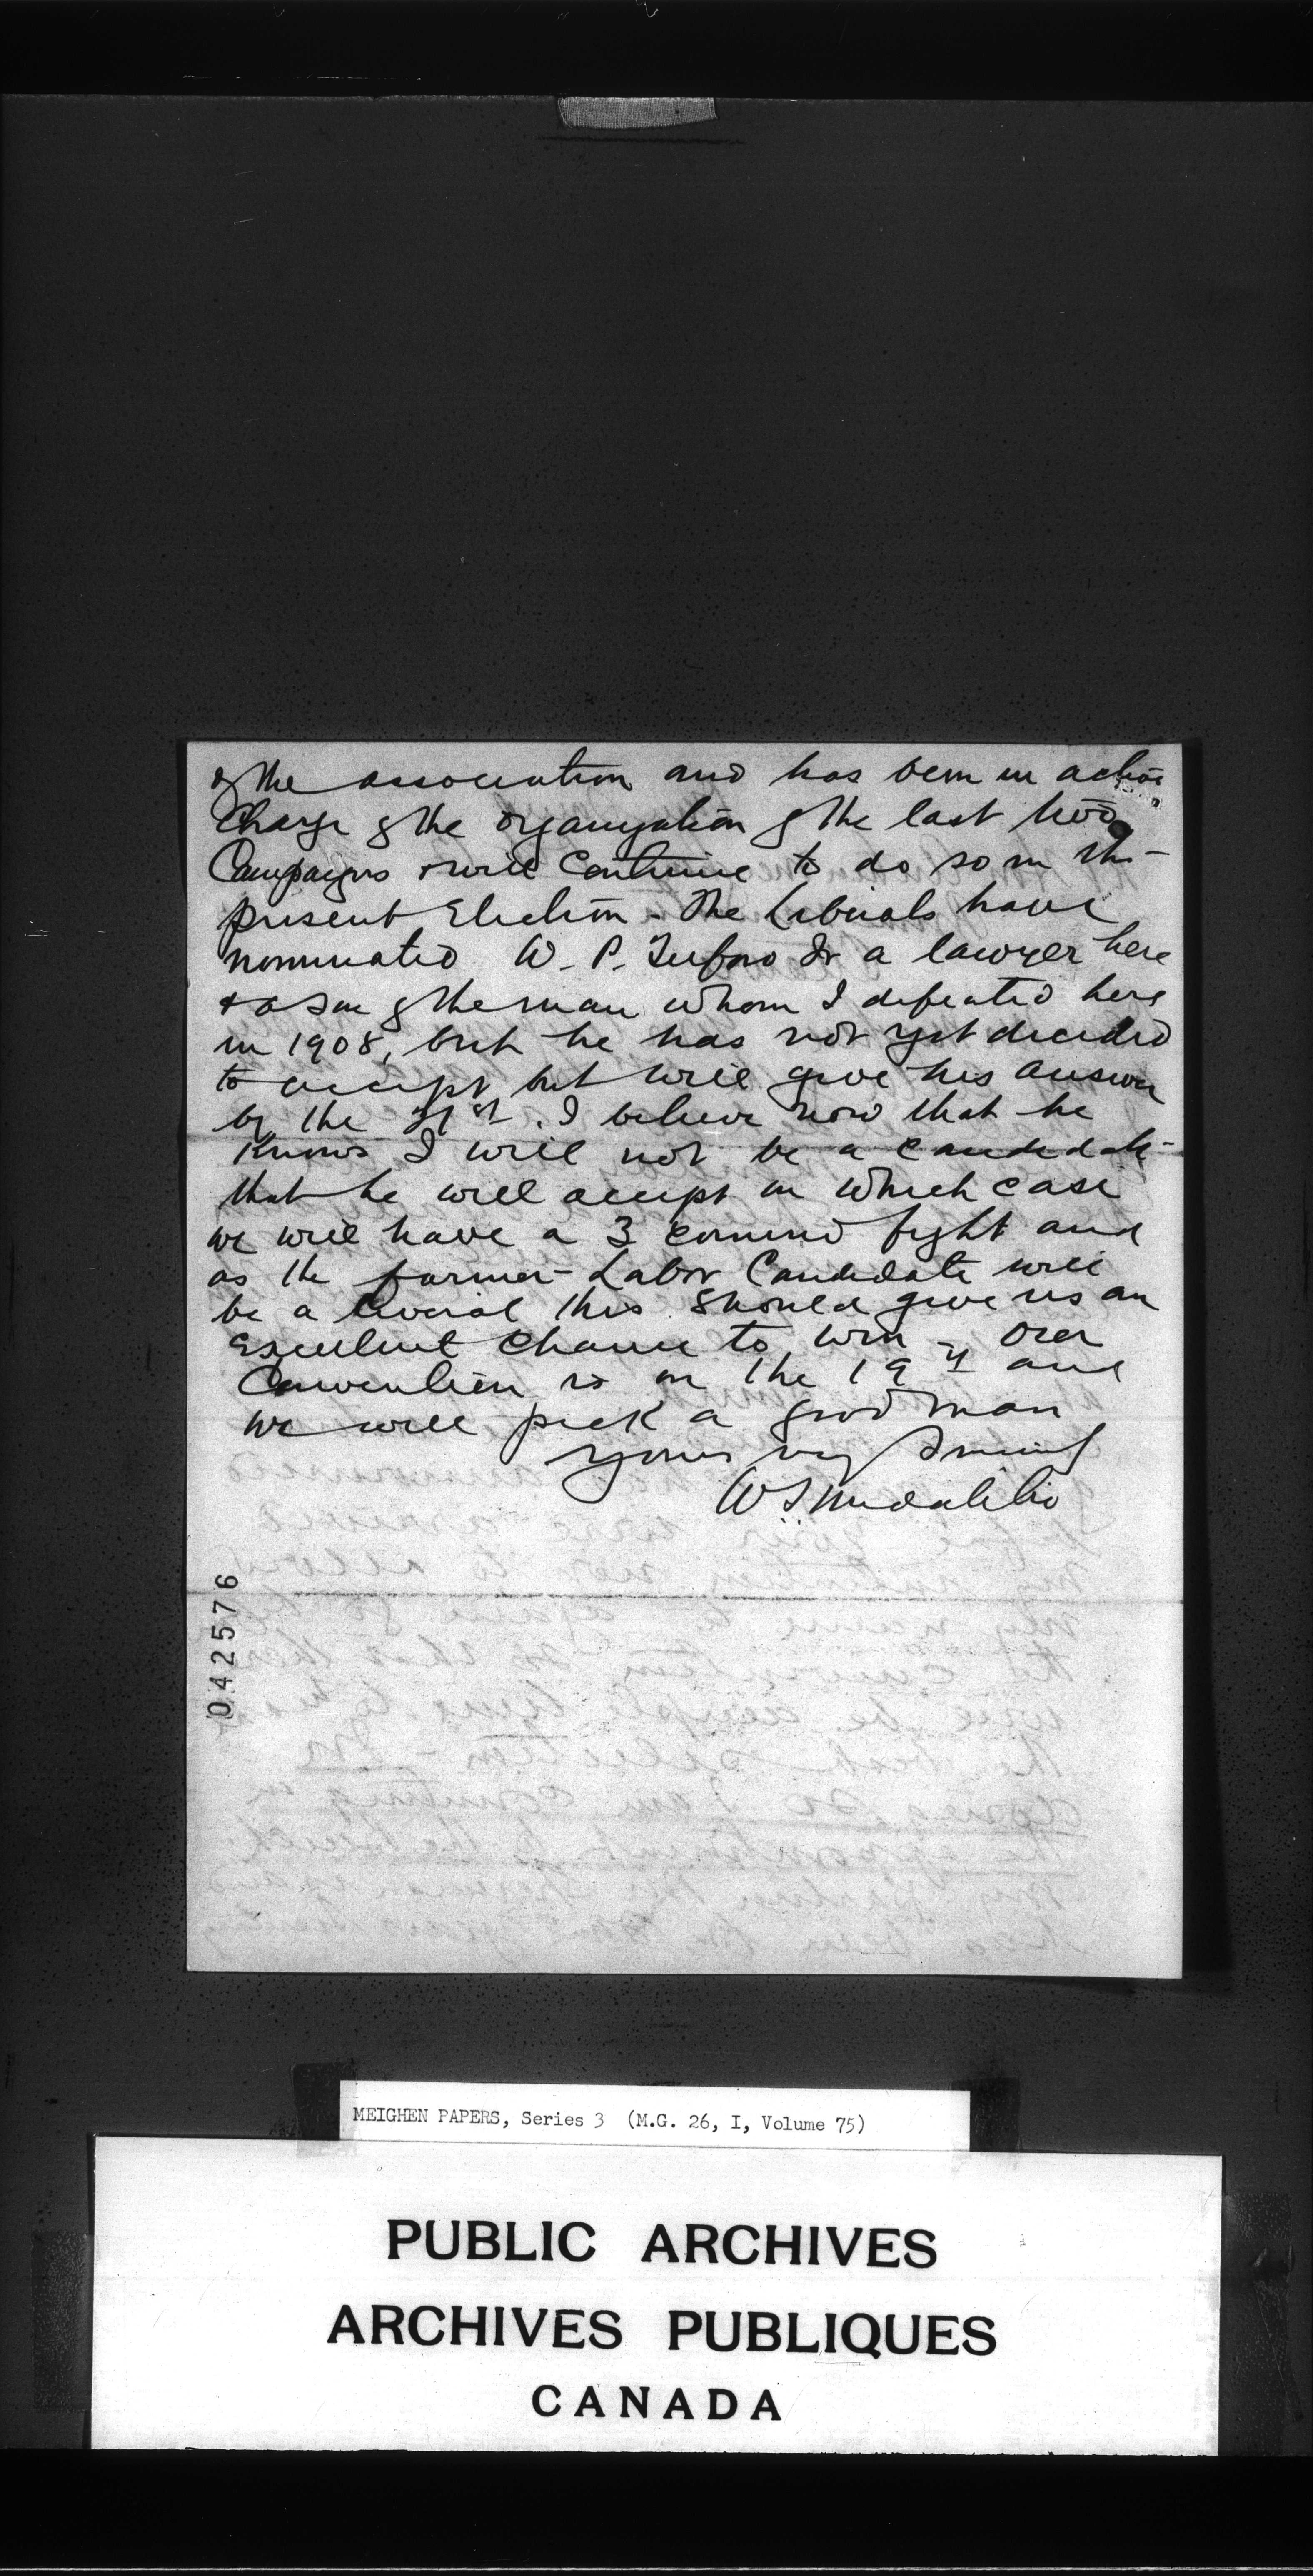 of the association and has been in active
charge of the organization of the last two
Campaigns & will Continue to do so in this
present Election - The Liberals have
nominated W. P. Jr a lawyer here
& a son of the man whom I defeated here
in 1908, but he has not yet decided
to accept but will give his answer
by the 21st. I believe now that he
knows I will not be a candidate
that he will accept in which case
we will have a 3 cornered fight and
as the farmer-Labor Candidate will
be a Liberal this should give us an
Excellent chance to win - Our
Convention is on the 19th and
we will pick a good man
Yours very Sincerely
W S Middlebro
042576
MEIGHEN PAPERS, Series 3 (M.G. 26, I, Volume 75)
PUBLIC ARCHIVES
ARCHIVES PUBLIQUES
CANADA